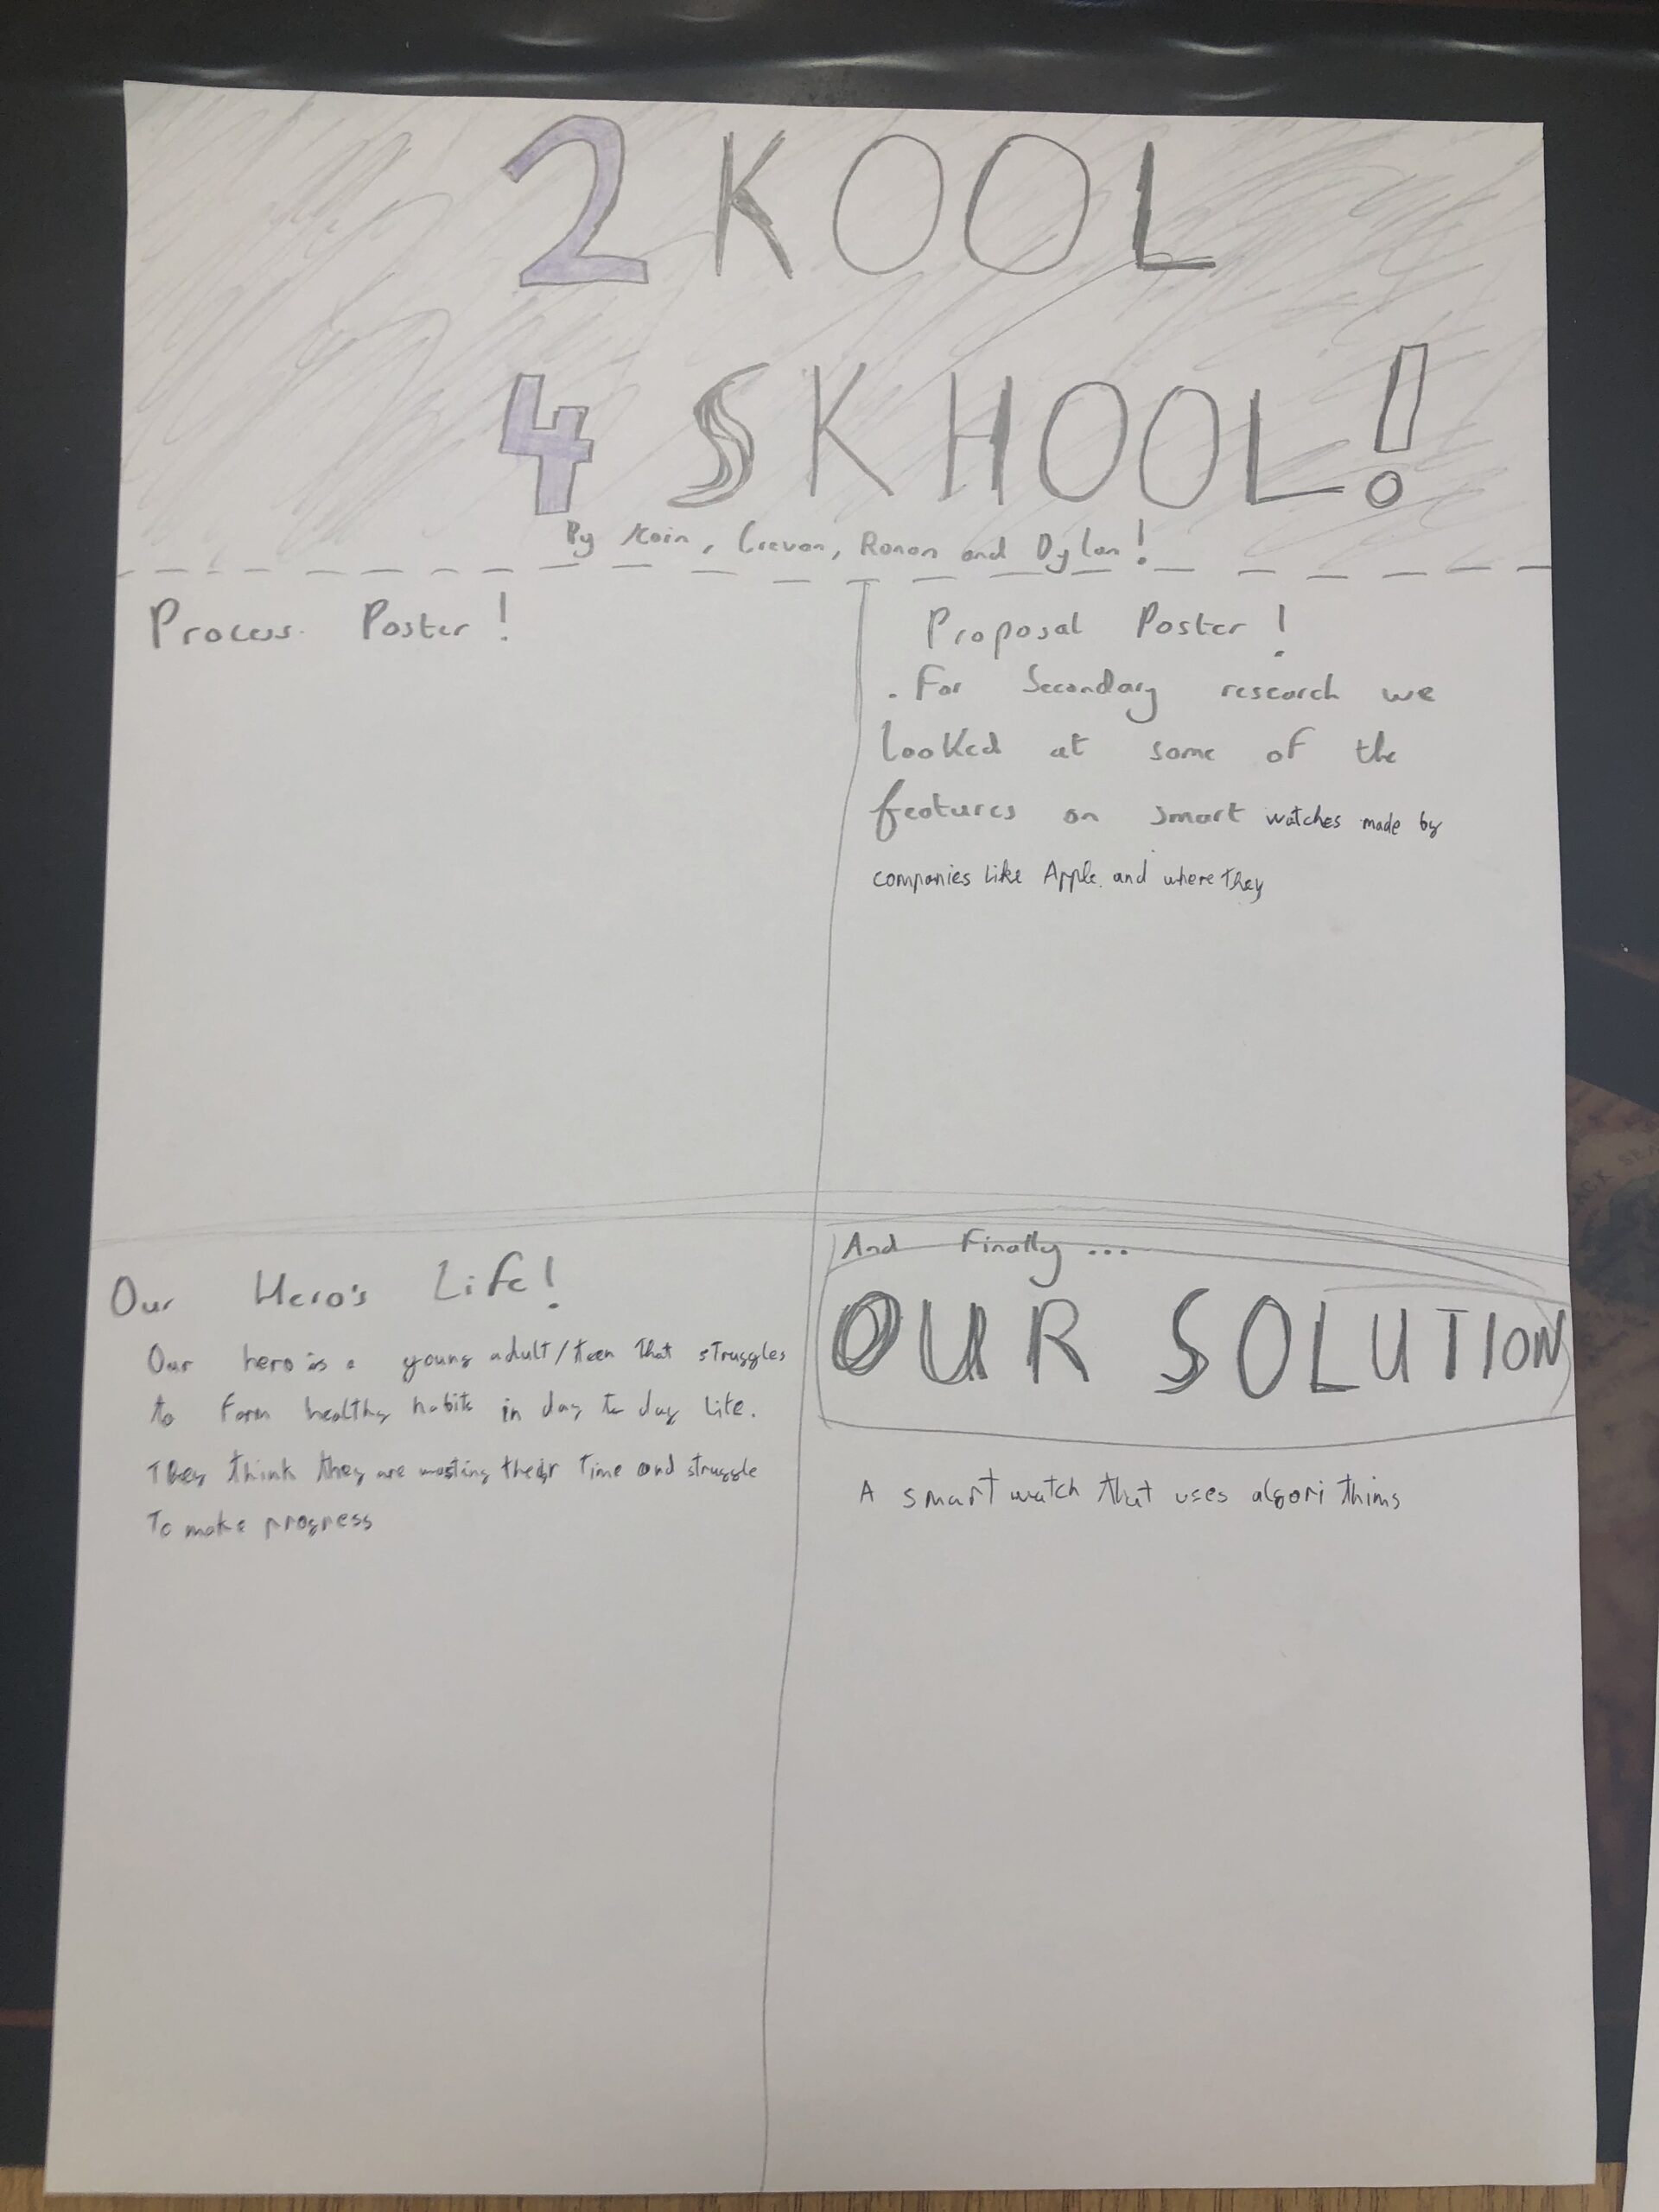 2 KOOL
4 SKHOOL!
By , , Ronan and Dylan!
Process Poster!
Proposal Poster!
. For Secondary research we
looked at some of the
features on smart watches made by
companies like Apple. and where they
Our Hero's Life!
Our hero is a young adult/teen that struggles
to form healthy habits in day to day life.
They think they are wasting their time and struggle
To make progress
And Finally ...
OUR SOLUTION
A smart watch that uses algorithims